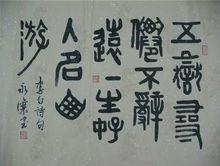 五嶽尋
僊不辭
遠一生好
入名山
游
李白詩句
永傑書